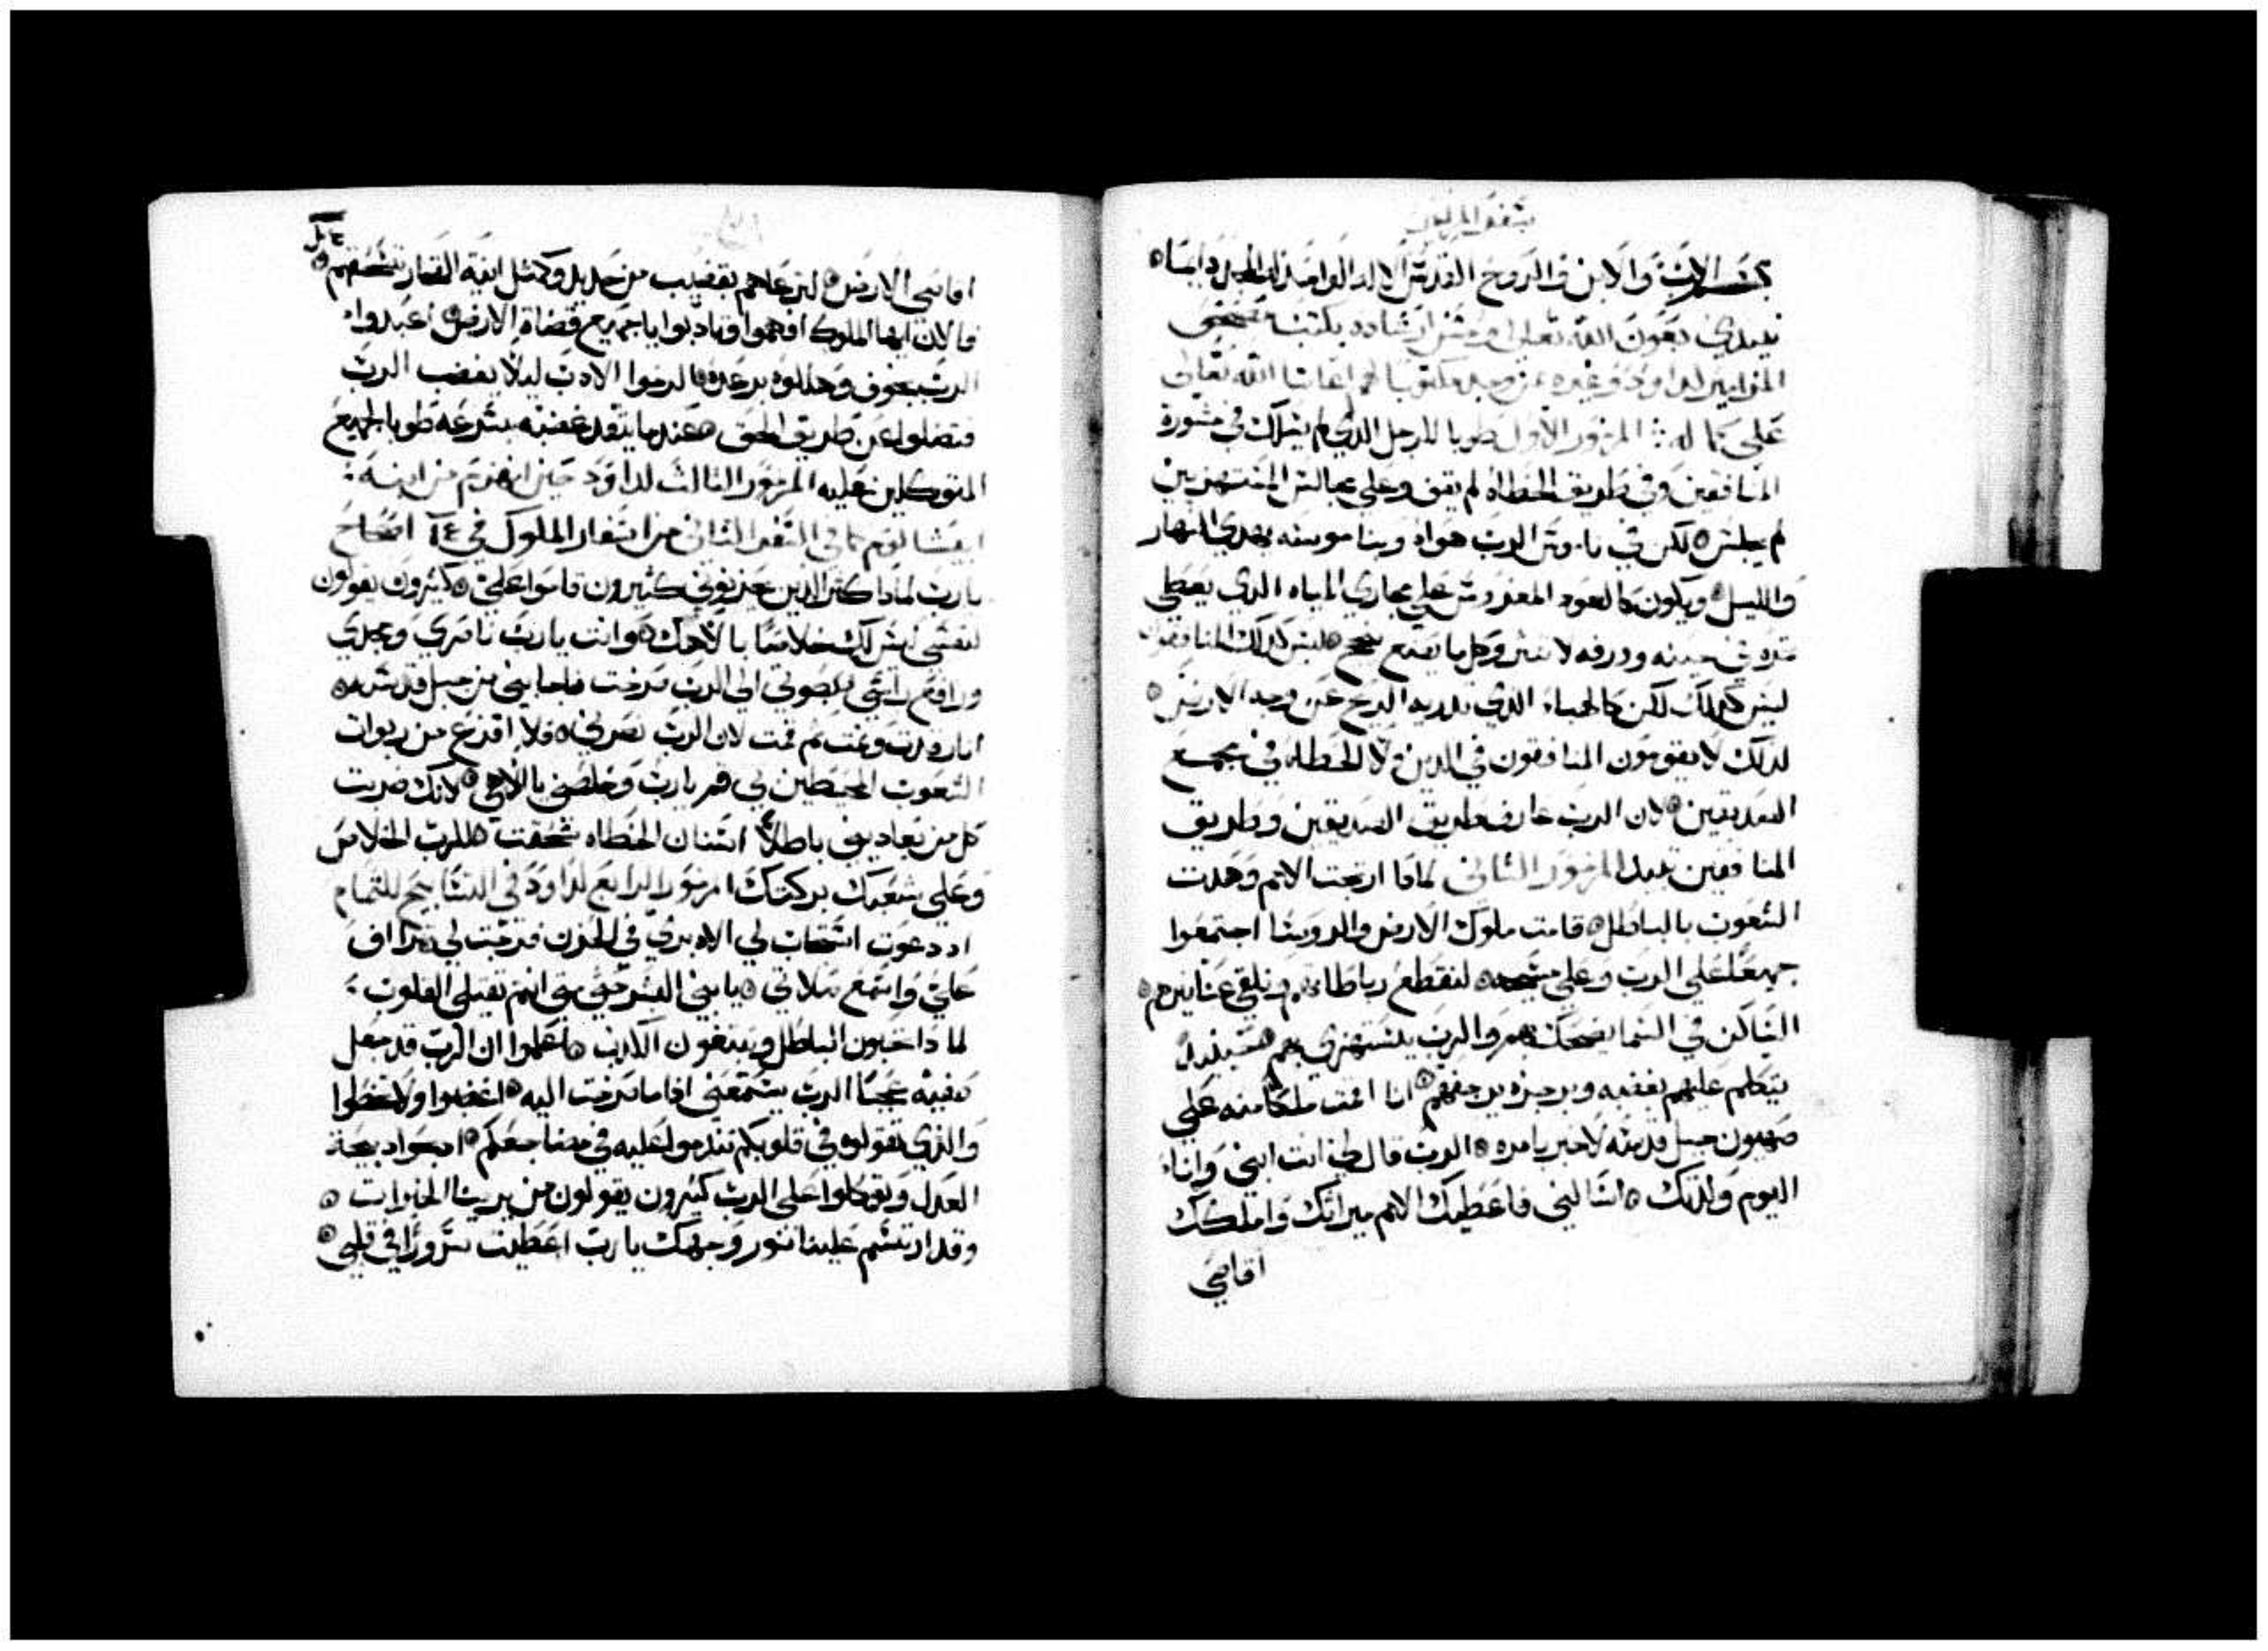 بسم الاب والابن والروح القدس الاله الواحد له المجد دايما
نبتدي بعون الله تعالى وحسن ارشاده بكتب
المزامير لداود وغيره الله تعالى
على كماله المزمور الاول طوبا للرجل الذي لم يسلك في مشورة
المنافقين وفي طريق الخطاه لم يقف وعلى مجالس المستهزيين
لم يجلس لكن في ناموس الرب هواه وبناموسه يهدي النهار
والليل ويكون كالعود المغروس على مجاري المياه الذي يعطي
ثمره في حينه وورقه لا ينثر وكل ما يصنع ينجح ليس كذلك المنافقون
ليس كذلك لكن كالهباء الذي تذريه الريح عن وجه الارض
لذلك لا يقومون المنافقون في الدين ولا الخطاه في مجمع
الصديقين لان الرب عارف طريق الصديقين وطريق
المنافقين تبيد المزمور الثاني لماذا ارتجت الامم وهذت
الشعوب بالباطل قامت ملوك الارض والروسا اجتمعوا
جميعا على الرب وعلى مسيحه لنقطع رباطاتهم ونلقي عنا نيرهم
الساكن في السما يضحك بهم والرب يستهزي بهم حينيذ
يتكلم عليهم بغضبه وبرجزه يرجفهم انا اقمت ملكا منه على
صهيون جبل قدسه لاخبر بامره الرب قال لي انت ابني وانا
اليوم ولدتك اسالني فاعطيك الامم ميراثك واملكك
اقاصي
اقاصي الارض لترعاهم بقضيب من حديد وكمثل انية الفخار تسحقهم
فالان ايها الملوك افهموا وتادبوا يا جميع قضاة الارض اعبدوا
الرب بخوف وهللوه برعدة الزموا الادب ليلا يغضب الرب
فتضلوا عن طريق الحق عندما يتقد غضبه بسرعه طوبا لجميع
المتوكلين عليه المزمور الثالث لداود حين انهزم من ابنه
ابيشالوم كما في السفر الثاني من اسفار الملوك في اصحاح
يارب لماذا كثر الذين يحزنوني كثيرون قاموا علي كثيرون يقولون
لنفسي ليس لك خلاصا بالاهك وانت يارب ناصري ومجدي
ورافع راسي بصوتي الى الرب صرخت فاجابني من جبل قدسه
انا رقدت ونمت ثم قمت لان الرب نصرني فلا افزع من ربوات
الشعوب المحيطين بي قم يارب وخلصني يا الاهي لانك ضربت
كل من يعاديني باطلا اسنان الخطاه سحقت للرب الخلاص
وعلى شعبك بركتك المزمور الرابع لداود في التسابيح للتمام
اذ دعوت استجاب لي الاه بري في الحزن فرجت لي تراف
علي واسمع صلاتي يا بني البشر حتى متى انتم ثقيلي القلوب
لماذا تحبون الباطل وتبتغون الكذب اعلموا ان الرب قد جعل
صفيه عجبا الرب يستمعني اذا ما صرخت اليه اغضبوا ولا تخطوا
والذي تقولوه في قلوبكم تندموا عليه في مضاجعكم اذبحوا ذبيحة
العدل وتوكلوا على الرب كثيرون يقولون من يرينا الخيرات
وقد ارتسم علينا نور وجهك يا رب اعطيت سرورا في قلبي